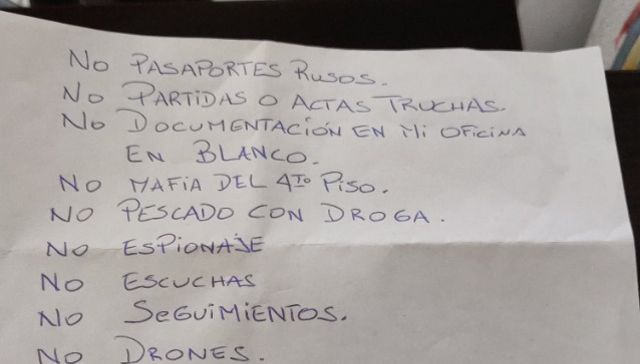 No PASAPORTES RUSOS.
No PARTIDAS O ACTAS TRUCHAS.
No DOCUMENTACIÓN EN Mi OFiCiNA
EN BLANCO.
No MAFiA DEL 4TO PiSO.
NO PESCADO CON DROGA.
NO ESPiONAJE
NO ESCUCHAS
NO SEGUiMiENTOS.
NO DRONES.